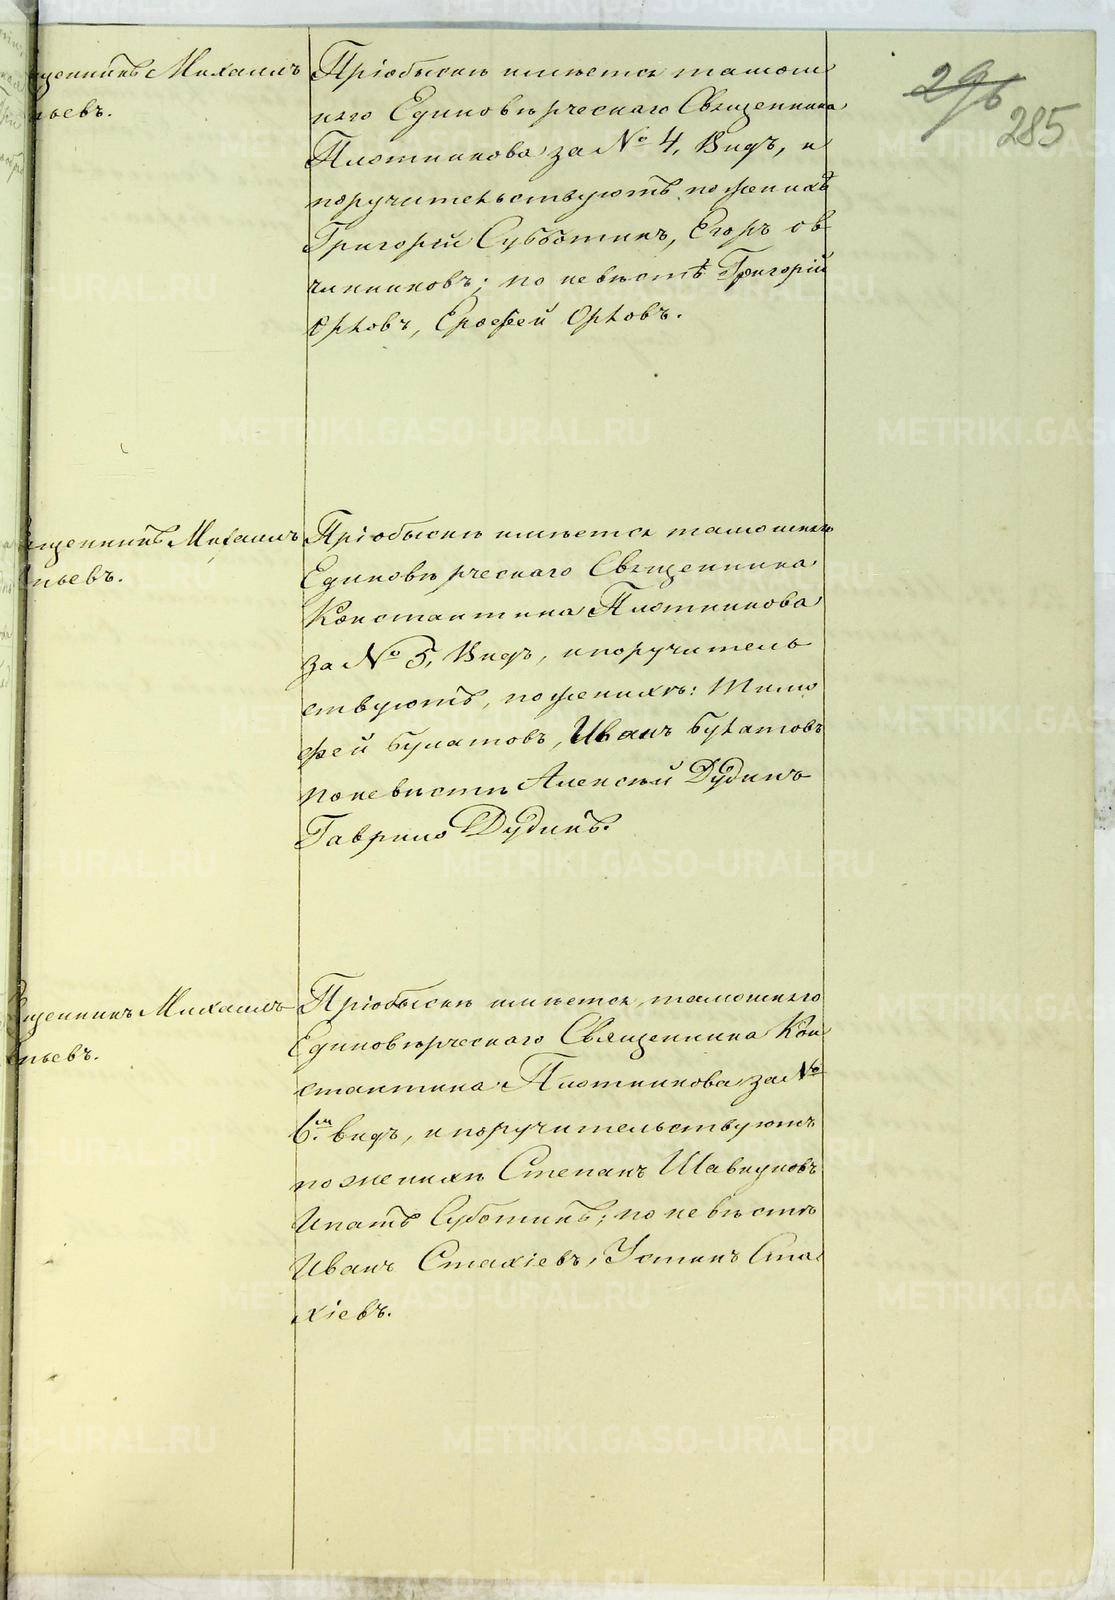 296
285
щенникъ Михаилъ
ньевъ.
При обыскѣ имѣется тамош
няго Единовѣрческаго Священника
Плотникова за № 4, Видъ, и
поручительствуютъ по женихѣ
Григорій Субботинъ, Егоръ Ов
чинниковъ; по невѣстѣ Григорій
Орловъ, Ерофей Орловъ.
щенникъ Михаилъ
ньевъ.
При обыскѣ имѣется тамошняго
Единовѣрческаго Священника
Константина Плотникова
за № 5, Видъ, и поручитель
ствуютъ, по женихѣ: Тимо
фей Булатовъ, Иванъ Булатовъ
по невѣстѣ Алексѣй Дудинъ
Гаврило Дудинъ.
щенникъ Михаилъ
ньевъ.
При обыскѣ имѣется, тамошняго
Единовѣрческаго Священника Кон
стантина Плотникова за №
6.м видъ, и поручительствуютъ
по женихѣ Степанъ Шавкуновъ
Ипатъ Суботинъ; по невѣстѣ
Иванъ Стахіевъ, Устинъ Ста
хіевъ.
METRIKI.GASO-URAL.RU